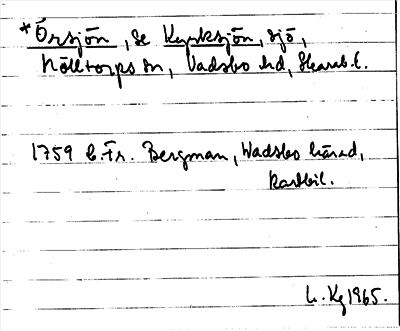 *Örsjön, se Kyrksjön, sjö,
Mölltorps sn, Vadsbo hd, Skarab. l.
1759 C. Fr. Bergman, Wadsbo härad,
Kartbil.
L. Kg 1965.